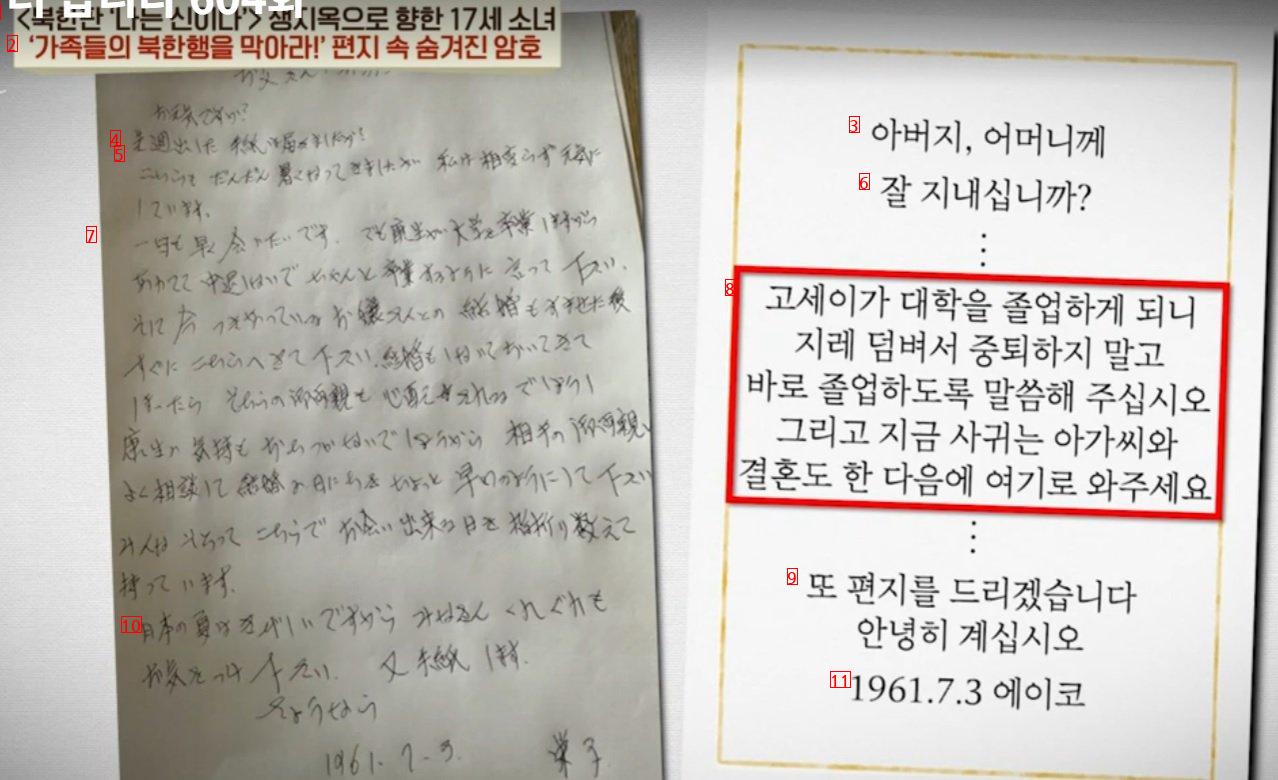 604회
<북한판 ‘나는 신이다’> 생지옥으로 향한 17세 소녀
‘가족들의 북한행을 막아라!’ 편지 속 숨겨진 암호
お元気ですか?
先週出した 手紙は届きましたか?
こちらも だんだん 暑くなってきましたが 私は相変らず元気に
しています。
一日も早く会いたいです。でも康生が大学を卒業しますから
あわてて 中退しないで ちゃんと 卒業するように 言って 下さい。
そして 今 つきあっている お嬢さんとの 結婚もすませた後
すぐに こちらへきて下さい。結婚も しないで おいてきて
しまったら そちらの御両親も 心配されるでしょうし
康生の 気持も おちつかないでしょうから 相手の御両親と
よく相談して 結婚の日にちを ちょっと 早めるようにして下さい
みんな そろって こちらで お会い出来る日を 指折り数えて
持っています。
日本の夏は きびしいですから みなさん くれぐれも
お気をつけ下さい。 又 手紙 します。
さようなら
1961. 7. 3. 栄子
아버지, 어머니께
잘 지내십니까?
⋮
고세이가 대학을 졸업하게 되니
지레 덤벼서 중퇴하지 말고
바로 졸업하도록 말씀해 주십시오
그리고 지금 사귀는 아가씨와
결혼도 한 다음에 여기로 와주세요
⋮
또 편지를 드리겠습니다
안녕히 계십시오
1961.7.3 에이코
2
3
4
5
6
7
8
9
10
11